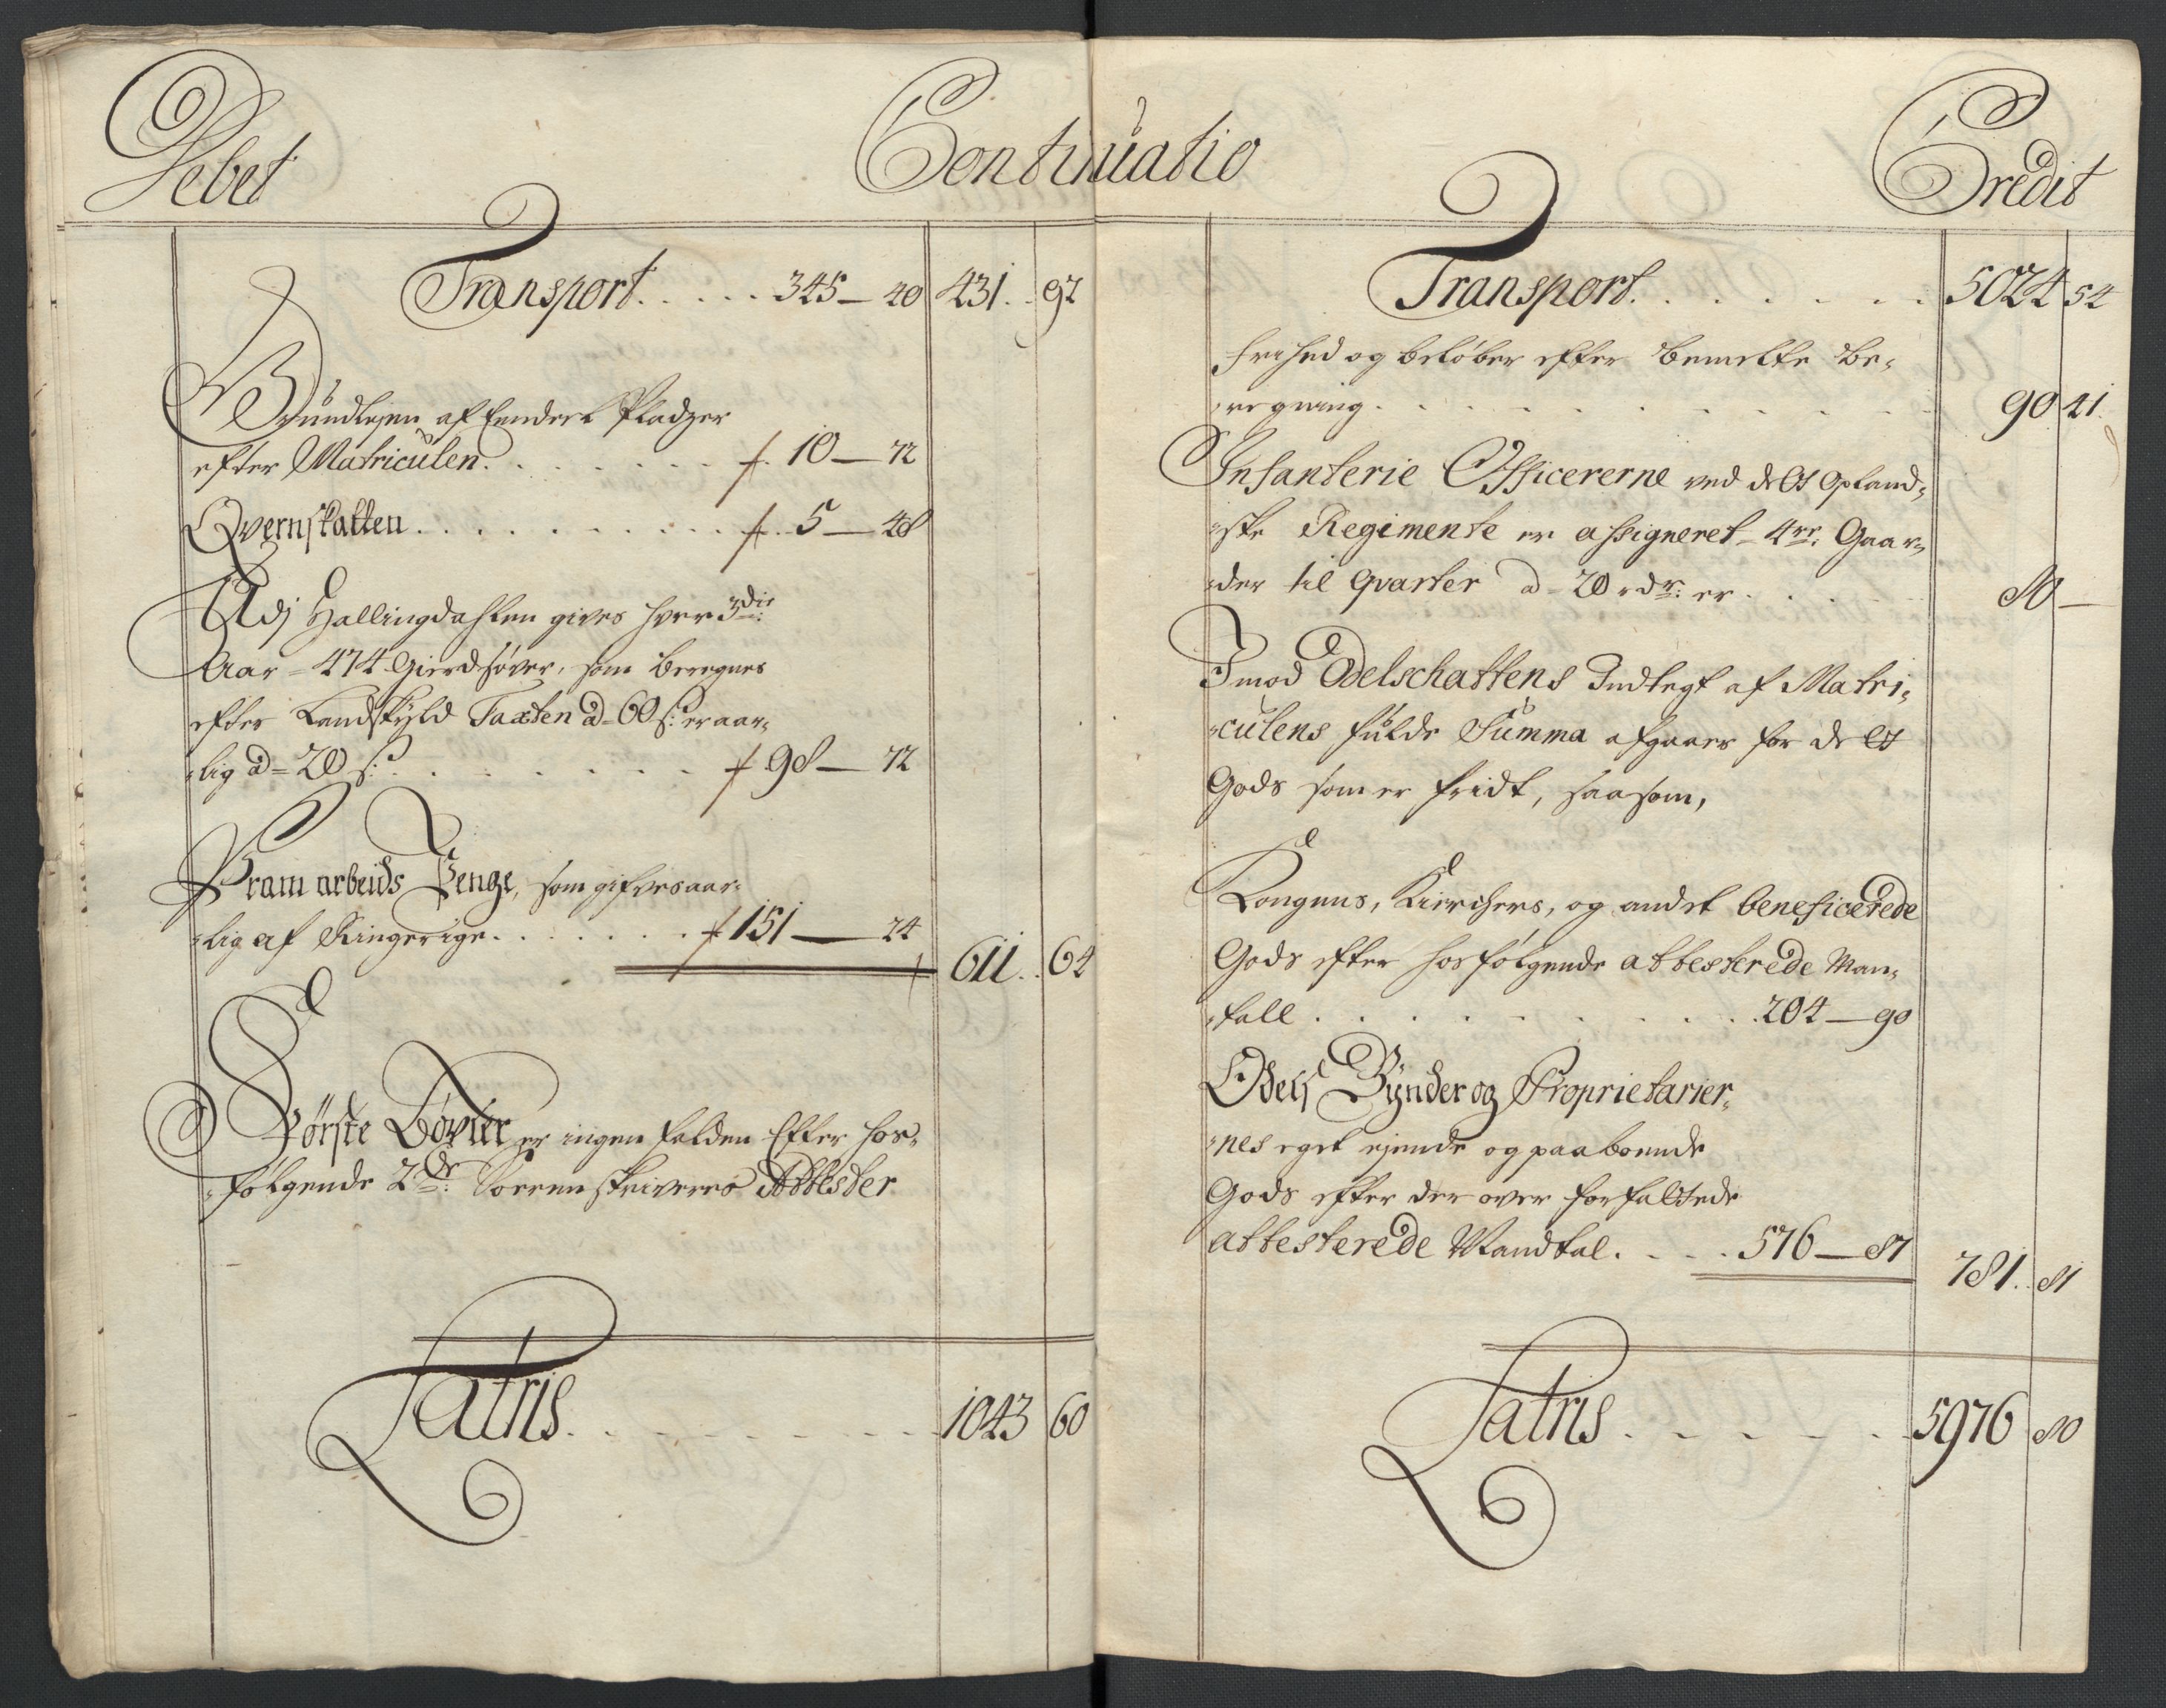 Debet
Continuatio
Transport . . . . . 345 — 40 431 . . 92
Grundlejen af Eendeel Pladzer
efter Matriculen . . . . . . . 10 — 72
Qvernskatten . . . . . . . . . 5 — 48
Udj Hallingdahlen gives hver 3die
Aar = 474 Gierdsøver, som beregnes
efter Landskyld Taxten â 60 s: er aar-
lig â = 20 s: . . . . . . . 98 — 72
Pram arbeids Penge, som gifves aar-
lig af Ringerige . . . . . . . 151 — 24
611 . . 64
Første Bøxler er ingen falden Efter hos-
følgende 2de: Sorenskriveres Attester
Latris . . . . . . . . . 1043 60
Credit
Transport . . . . . . . 5024 54
frihed og beløber efter bemelte be-
regning . . . . . . . . . . 90 41
Infanterie Officererne ved det Opland-
ske Regimente er assigneret 4re: Gaar-
der til qvarter â 20 rdr: er . . . . . 80 —
Imod Odelschattens Indtegt af Matri-
culens fulde Summa afgaaer for det
Gods som er fridt, saasom,
Kongens, Kierchers, og andet beneficerede
Gods efter hosfølgende attesterede Man-
tall . . . . . . . . . . 204 — 90
Odels Bønder og Proprietarier-
nes eget ejende og paaboende
Gods efter der over forfattede
attesterede Mandtal . . . . 576 — 87
781 . . 81
Latris . . . . . . 5976 80